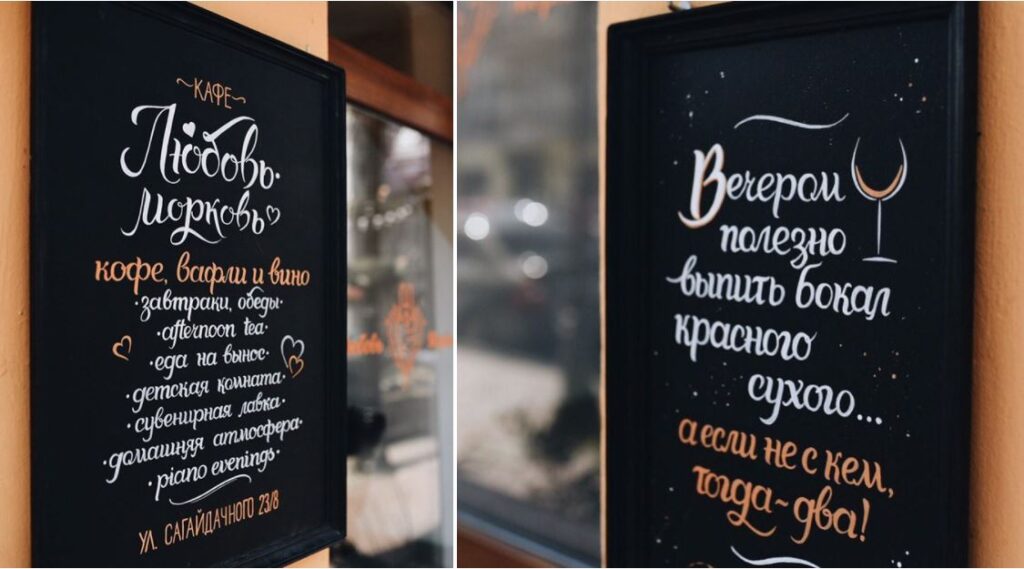 ~КАФЕ~
Любовь-
морковь
кофе, вафли и вино
·завтраки, обеды·
·afternoon tea·
·еда на вынос·
·детская комната·
·сувенирная лавка·
·домашняя атмосфера·
·piano evenings·
УЛ. САГАЙДАЧНОГО 23/8
Вечером
полезно
выпить бокал
красного
сухого...
а если не с кем,
тогда-два!